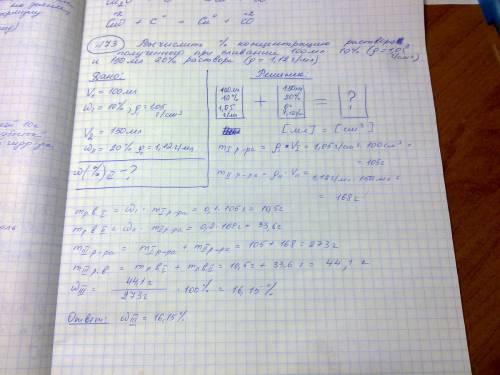 CuO + C⁰ = Cu⁰ + CO
№73 Вычислить % концентрацию раствора
полученного при сливании 100 мл 10% (ρ=1,05 г/см³)
и 150 мл 20% раствора (ρ = 1,12 г/мл)
Дано:
V₁ = 100 мл
ω₁ = 10%, ρ = 1,05 г/см³
V₂ = 150 мл
ω₂ = 20% ρ = 1,12 г/мл
ω(%)III - ?
Решение
100 мл 10% 1,05 г/мл + 150 мл 20% = ?
[мл] = [см³]
m I р-ра = ρ₁ * V₁ = 1,05 г/см³ · 100 см³ =
= 105 г
m II р-ра = ρ₂ · V₂ = 1,12 г/мл · 150 мл =
= 168 г
m р.в I = ω₁ · m I р-ра = 0,1 · 105 г = 10,5 г
m р.в II = ω₂ · m II р-ра = 0,2 · 168 г = 33,6 г
m III р-ра = m I р-ра + m II р-ра = 105 + 168 = 273 г
m III р.в = m р.в I + m р.в II = 10,5 г + 33,6 г = 44,1 г
ω III = 44,1 / 273 г · 100% = 16,15%
Ответ: ω III = 16,15%